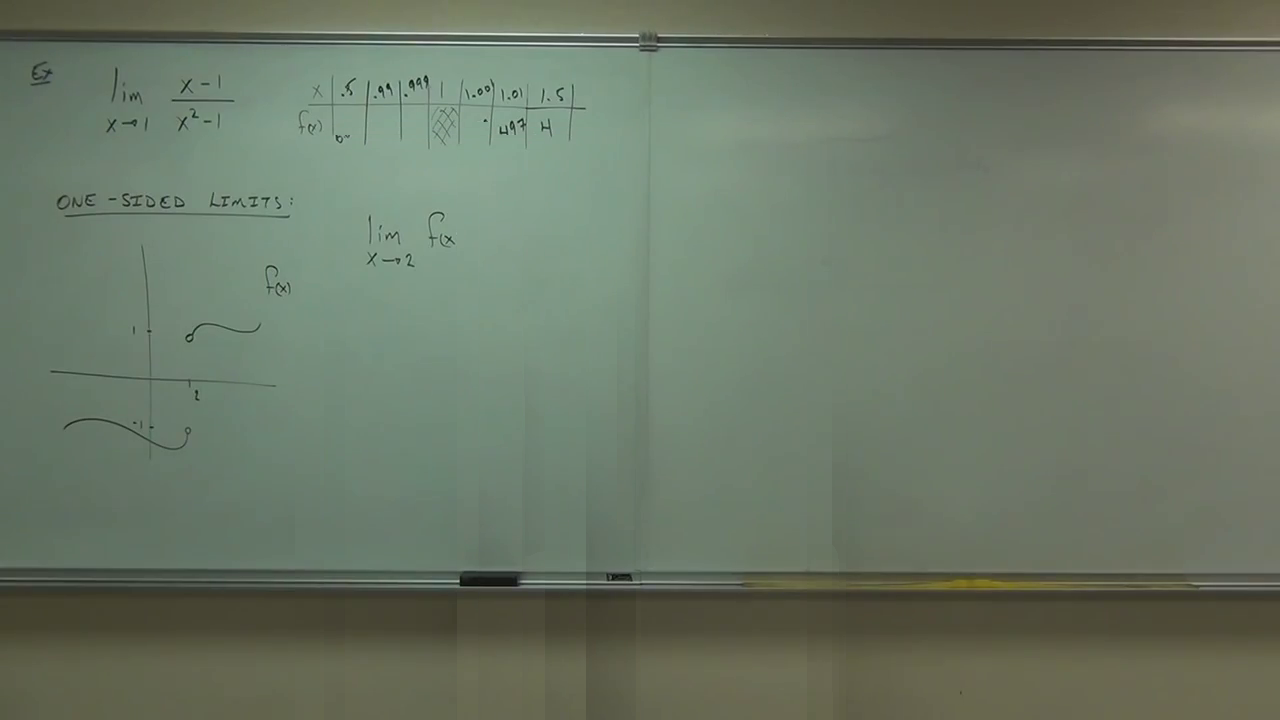 Ex lim x→1 x-1 / x²-1
x .5 .99 .999 1 1.00 1.01 1.5
f(x) .497 .4
ONE-SIDED LIMITS:
lim x→2 f(x
f(x)
1
2
-1